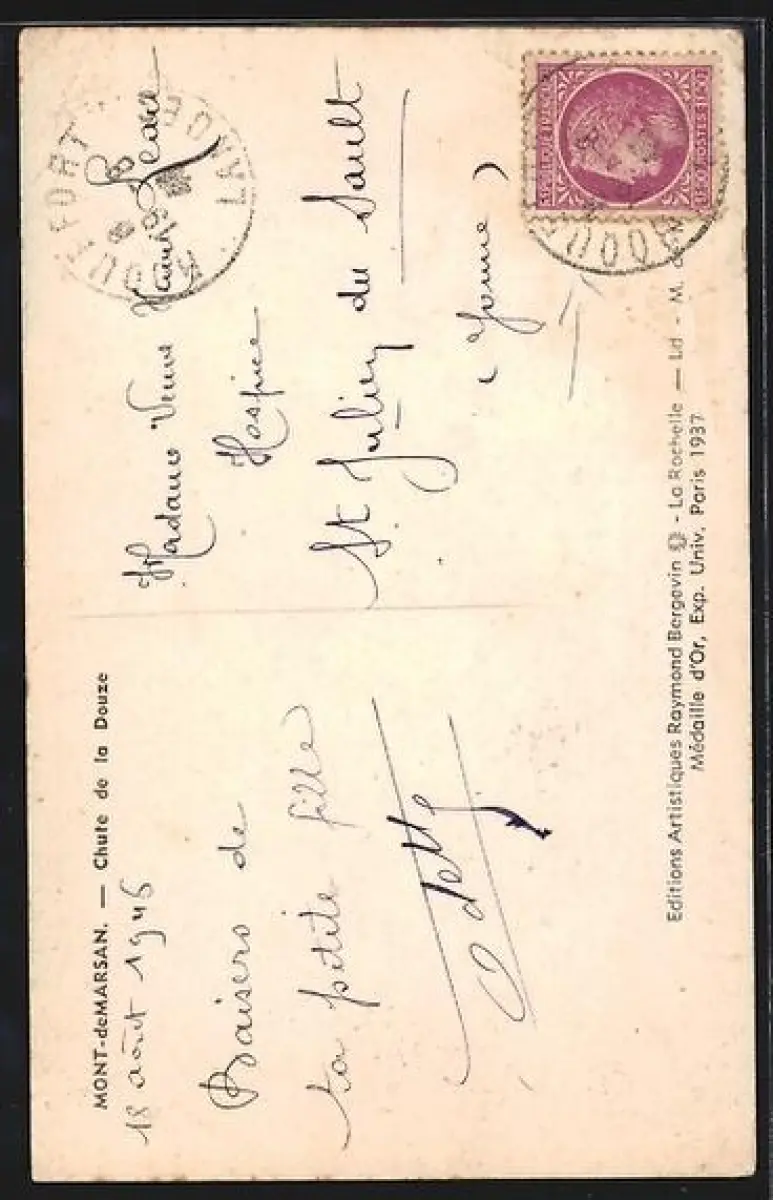 MONT-de-MARSAN. — Chute de la Douze
18 août 1946
Baisers de
ta petite fille
Odette
Madame Veuve
Hospice
St Julien du Sault
(Yonne)
ROQUEFORT
REPUBLIQUE FRANCAISE
1F50 POSTES 1F50
Editions Artistiques Raymond Bergevin - La Rochelle — Lid - M.
Médaille d'Or, Exp. Univ. Paris 1937